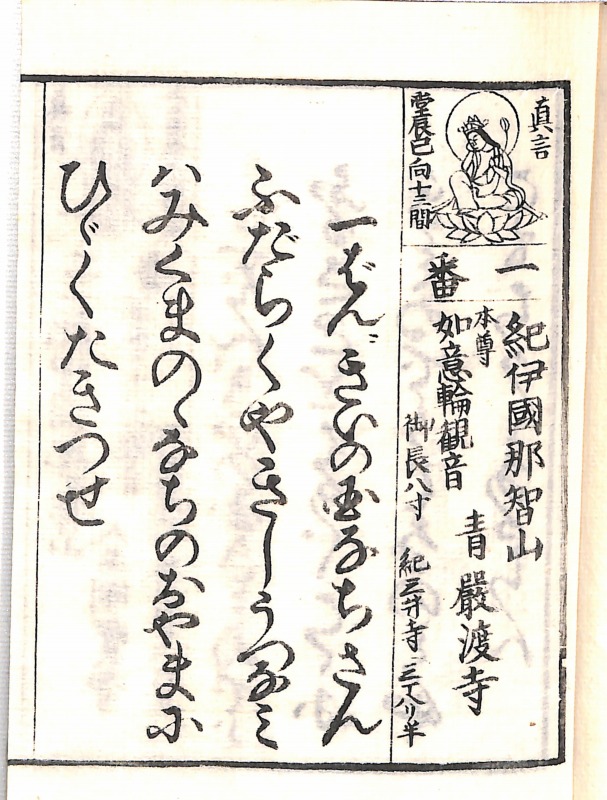 真言
堂辰巳向十三間
一番
紀伊國那智山
青嚴渡寺
本尊
如意輪観音
御長八寸
紀三井寺 八リ半
一ばんきいの国なちさん
ふだらくやきしうつなミ
ハみくまのゝなちのおやまに
ひゞくたきつせ